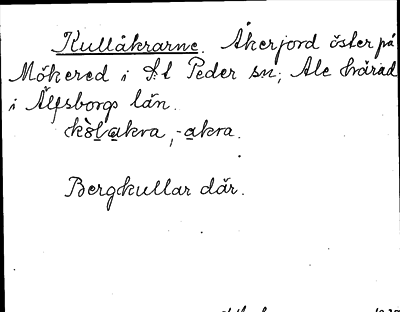 Kullåkrarne. Åkerjord öster på
Mökered i St Peder sn, Ale härad
i Älfsborgs län.
kòlakra, -akra.
Bergkullar där.